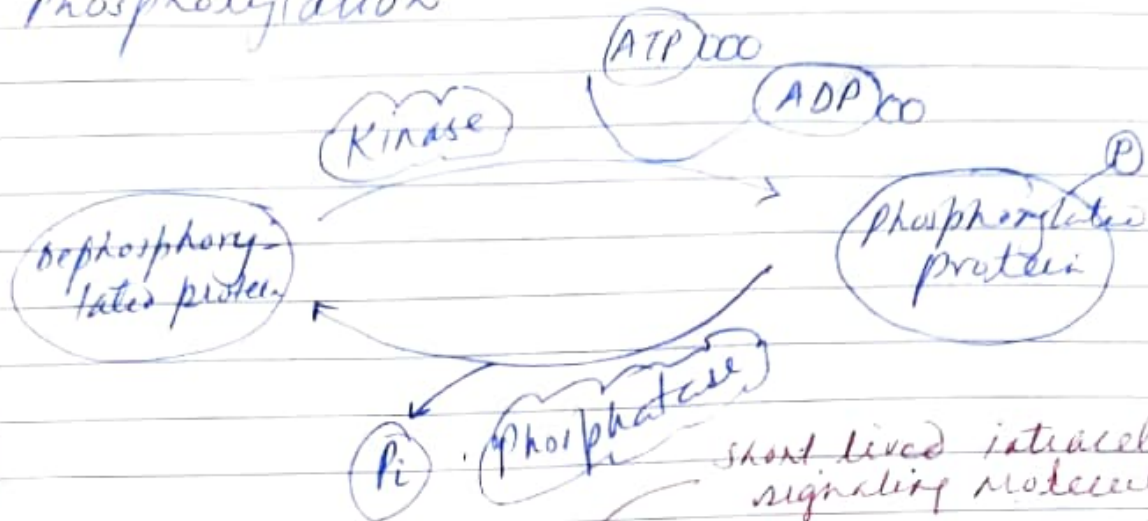 Phosphorylation
ATP
ADP
Kinase
P
Dephosphory-
lated protein
Phosphorylated
protein
Phosphatase
Pi
short lived intracel
signaling molecul